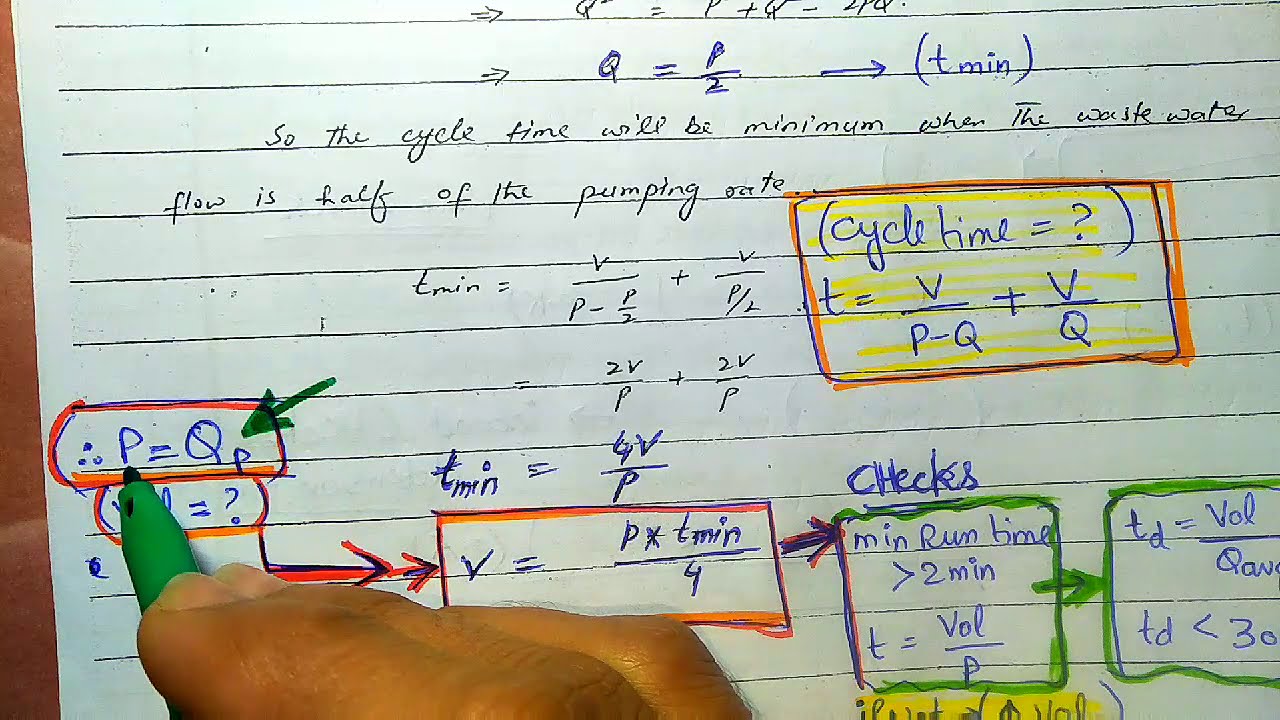 ⇒ Q² = P² + Q² - 2PQ.
⇒ Q = P/2 → (tmin)
So the cycle time will be minimum when The waste water
flow is half of the pumping rate.
(cycle time = ?)
t = V/(P-Q) + V/Q
tmin = V/(P - P/2) + V/(P/2)
= 2V/P + 2V/P
∴ P = Qp
tmin = 4V/P
= ?)
V = P * tmin / 4
CHecks
min Run time
> 2 min
t = Vol/P
td = Vol/Qavg
td < 30
if not → (↑ Vol)